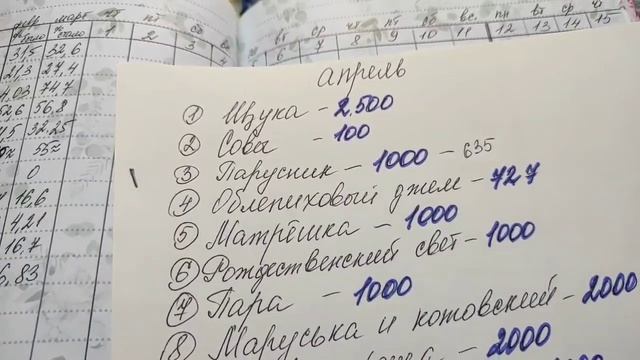 март
стало
315 32,6
21,3 27,4
4,03 74,7
52,6 56,8
32,25
0
16,6
4,21
16,7
6,83
чт пт сб
1 2 3 4
вт ср чт пт сб вс пн вт ср чт
6 7 8 9 10 11 12 13 14 15
апрель
1 Щука - 2.500
2 Совы - 100
3 Парусник - 1000 - 635
4 Облепиховый джем - 727
5 Матрёшка - 1000
6 Рождественский свет - 1000
7 Пара - 1000
8 Маруська и котовский - 2000
2000